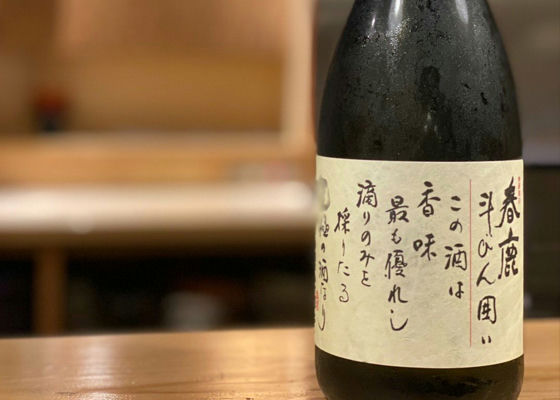 春鹿
斗びん囲い
この酒は
香味
最も優れし
滴りのみを
採りたる
の酒なり